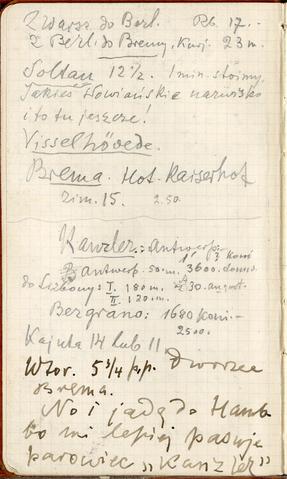 Z Warsz. do Berl. Rb. 17..
Z Berl. do Bremy, Kurj. 23 m.
Soltau 12 1/2. 1 min. stoimy.
Jakieś Słowiańskie nazwisko
i to tu jeszcze!
Visselhövede.
Brema. Hot. Kaiserhof
zim. 15. 2.50.
Kanzler: Antwerp.
3 koni
antwerp. 50 m. 3600.
do Lizbony: I. 180 m. 30. august.
II. 120 m.
Bergrano: 1680 koni.–
2500.
Kajuta 14 lub 11
Wtor. 5 3/4 p.p. Dworzec
Brema.
No i jadę do Hamb.
bo mi lepiej pasuje
parowiec „Kanzler"